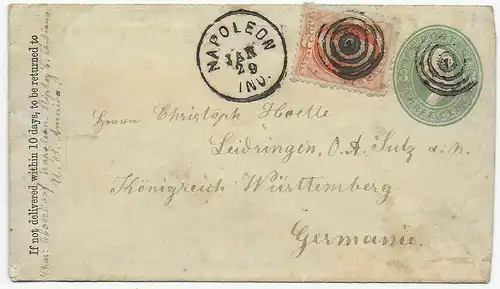 If not delivered within 10 days, to be returned to
Napoleon Ripley Co. Indiana
America!
NAPOLEON
JAN
29
IND.
Herrn Christoph Hoelle
Leidringen, O. A. Sulz a. n.
Königreich Württemberg
Germanie.